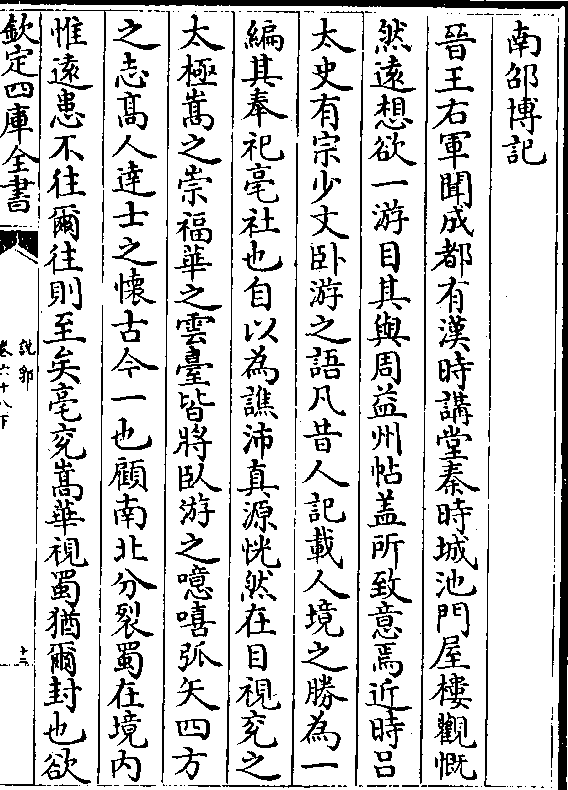 南邵博記
晉王右軍聞成都有漢時講堂秦時城池門屋樓觀慨
然遠想欲一游目其與周益州帖盖所致意焉近時吕
太史有宗少文卧游之語凡昔人記載人境之勝為一
編其奉祀亳社也自以為譙沛真源恍然在目視兖之
太極嵩之崇福華之雲臺皆將卧游之噫嘻弧矢四方
之志髙人達士之懷古今一也顧南北分裂蜀在境内
惟遠患不往爾往則至矣亳兖嵩華視蜀猶爾封也欲
欽定四庫全書
説郛
卷六十八下
十三